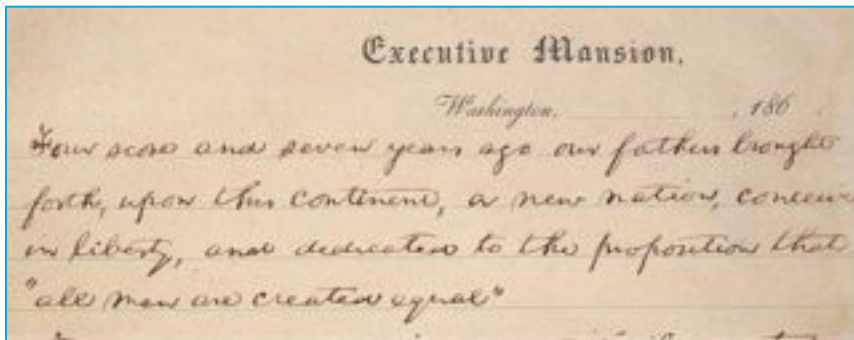 Executive Mansion,
Washington, , 186
Four score and seven years ago our fathers brought
forth, upon this continent, a new nation, conceive
in liberty, and dedicated to the proposition that
"all men are created equal"